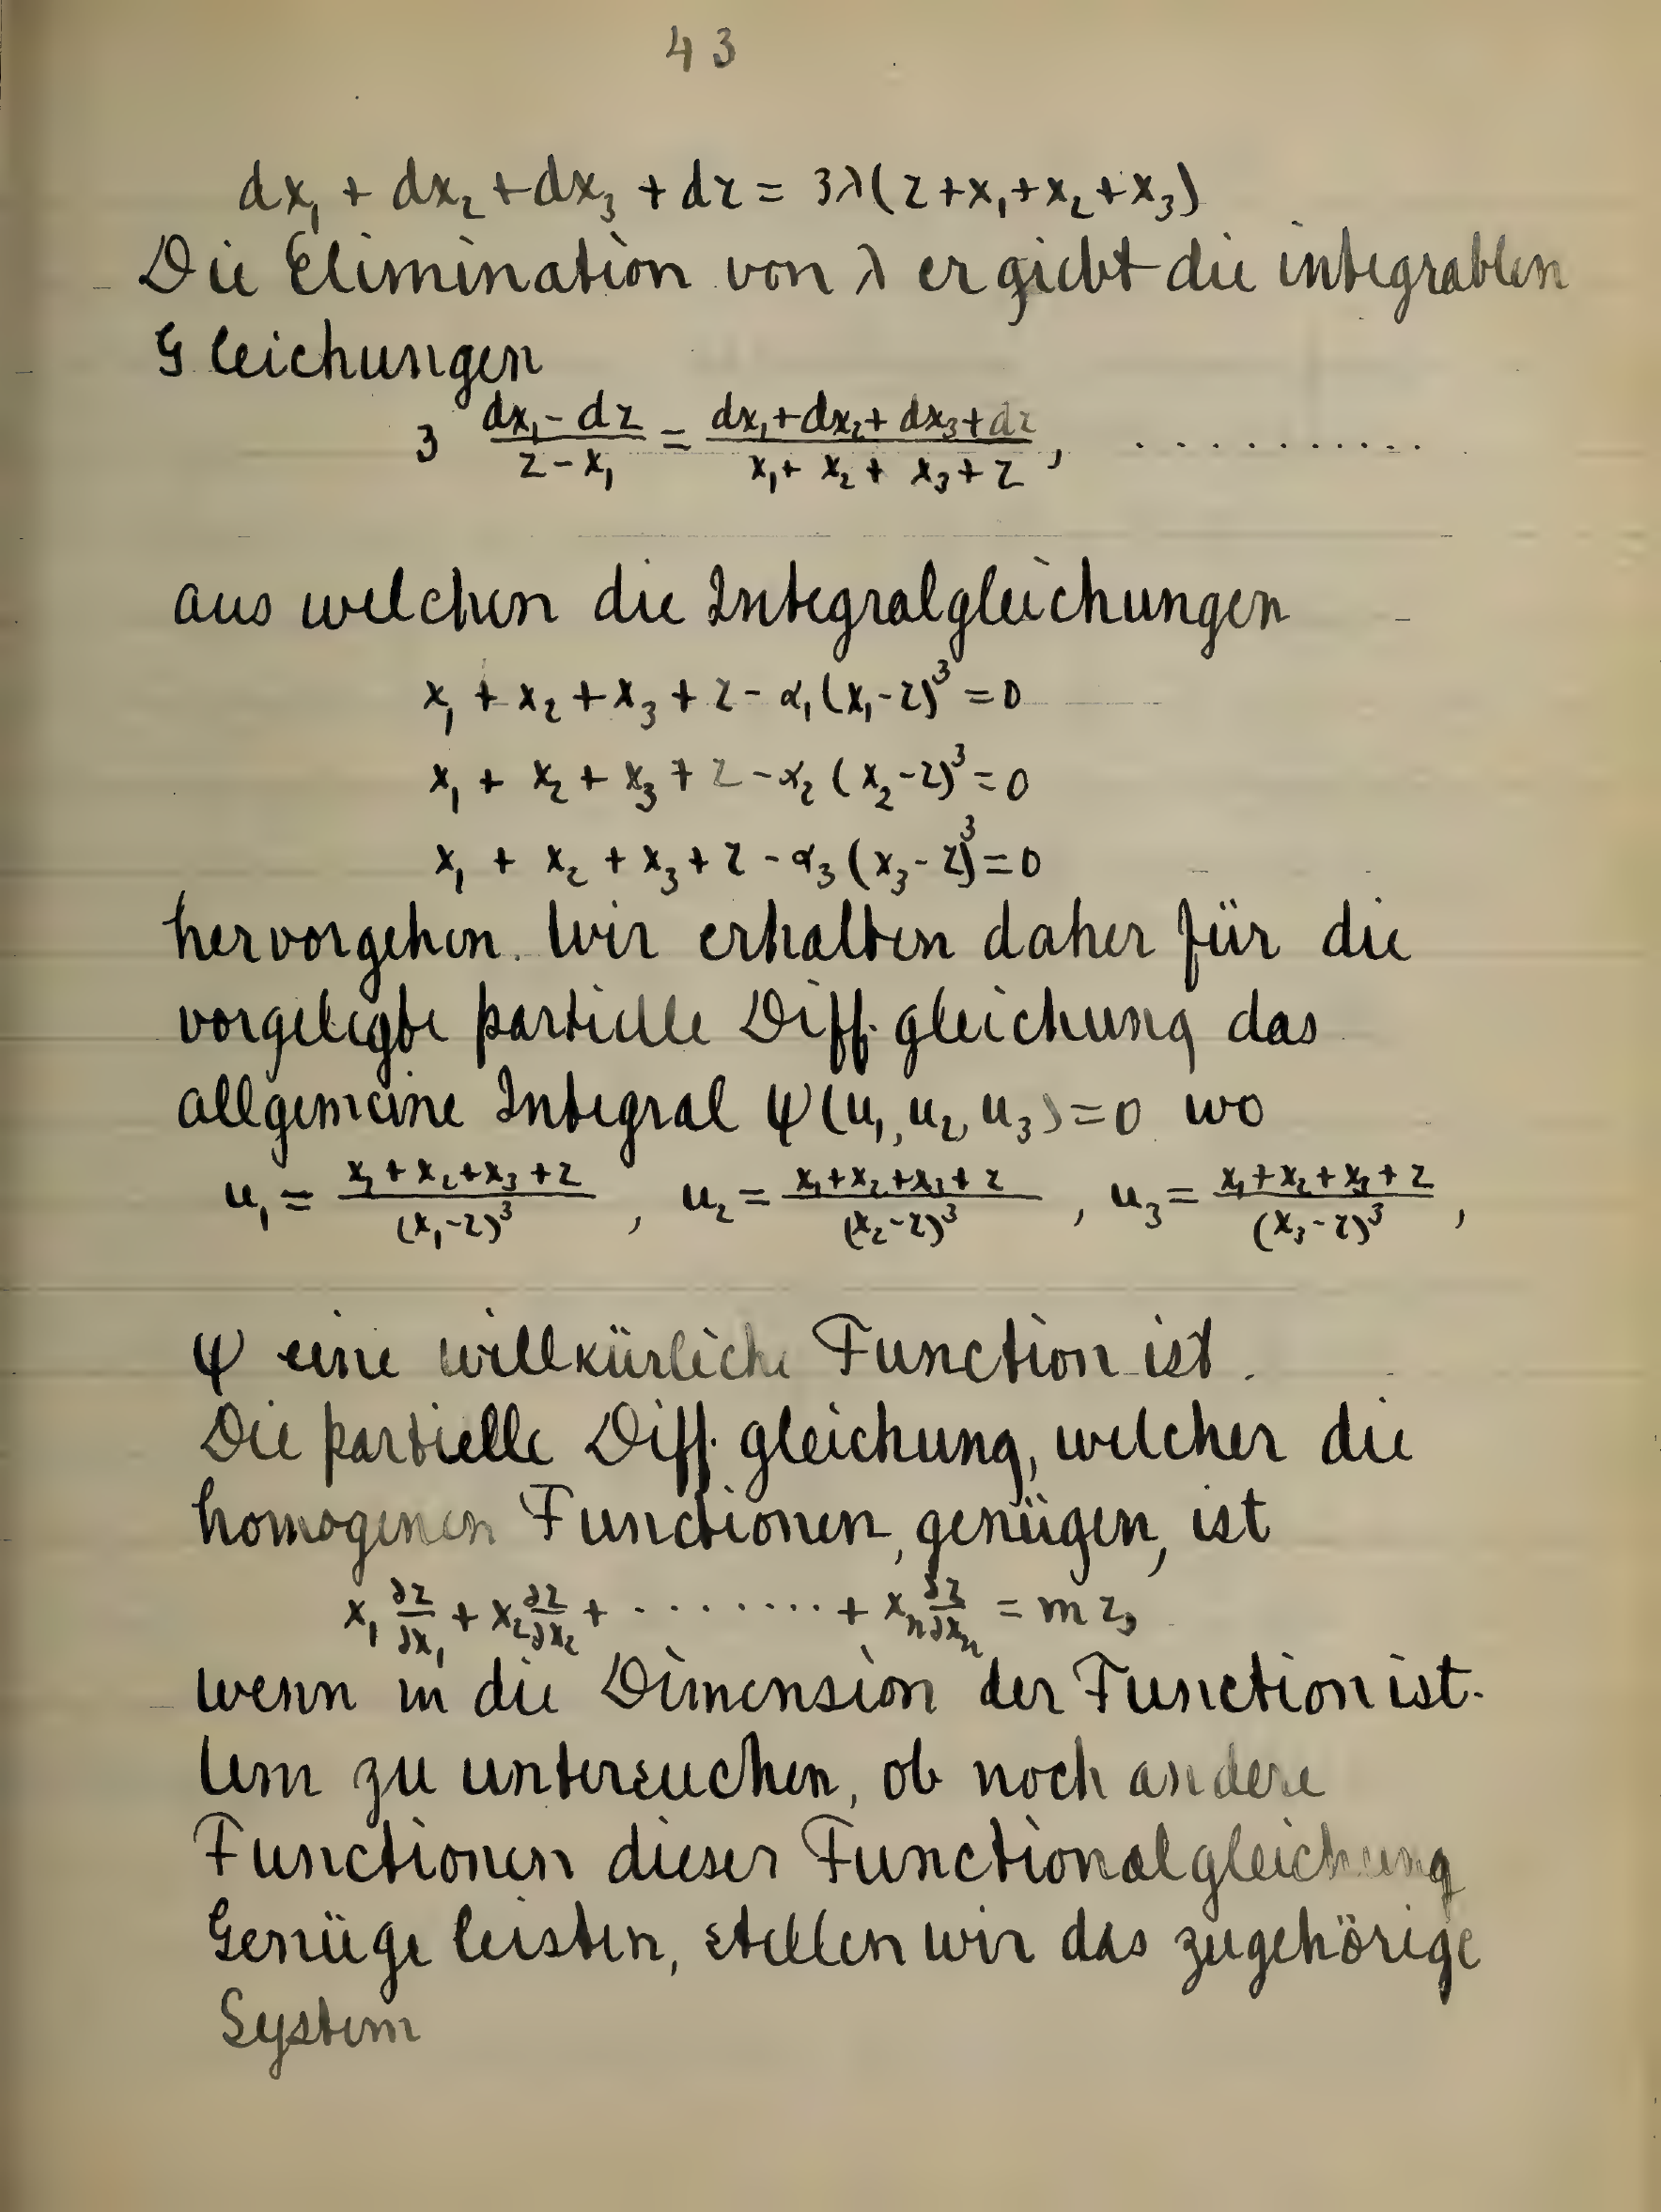 43
dx₁ + dx₂ + dx₃ + dz = 3λ(z+x₁+x₂+x₃)
Die Elimination von λ ergiebt die integrablen
Gleichungen
3 (dx₁ - dz)/(z - x₁) = (dx₁+dx₂+dx₃+dz)/(x₁+x₂+x₃+z), ...........
aus welchen die Integralgleichungen
x₁ + x₂ + x₃ + z - α₁(x₁-z)³ = 0
x₁ + x₂ + x₃ + z - α₂(x₂-z)³ = 0
x₁ + x₂ + x₃ + z - α₃(x₃-z)³ = 0
hervorgehen. Wir erhalten daher für die
vorgelegte partielle Diff. gleichung das
allgemeine Integral ψ(u₁, u₂, u₃)=0 wo
u₁ = (x₁+x₂+x₃+z)/(x₁-z)³, u₂ = (x₁+x₂+x₃+z)/(x₂-z)³, u₃ = (x₁+x₂+x₃+z)/(x₃-z)³,
ψ eine willkürliche Function ist.
Die partielle Diff. gleichung, welcher die
homogenen Functionen, genügen, ist
x₁ ∂z/∂x₁ + x₂ ∂z/∂x₂ + ........ + xₙ ∂z/∂xₙ = m z,
wenn m die Dimension der Function ist.
Um zu untersuchen, ob noch andere
Functionen dieser Functionalgleichung
Genüge leisten, stellen wir das zugehörige
System